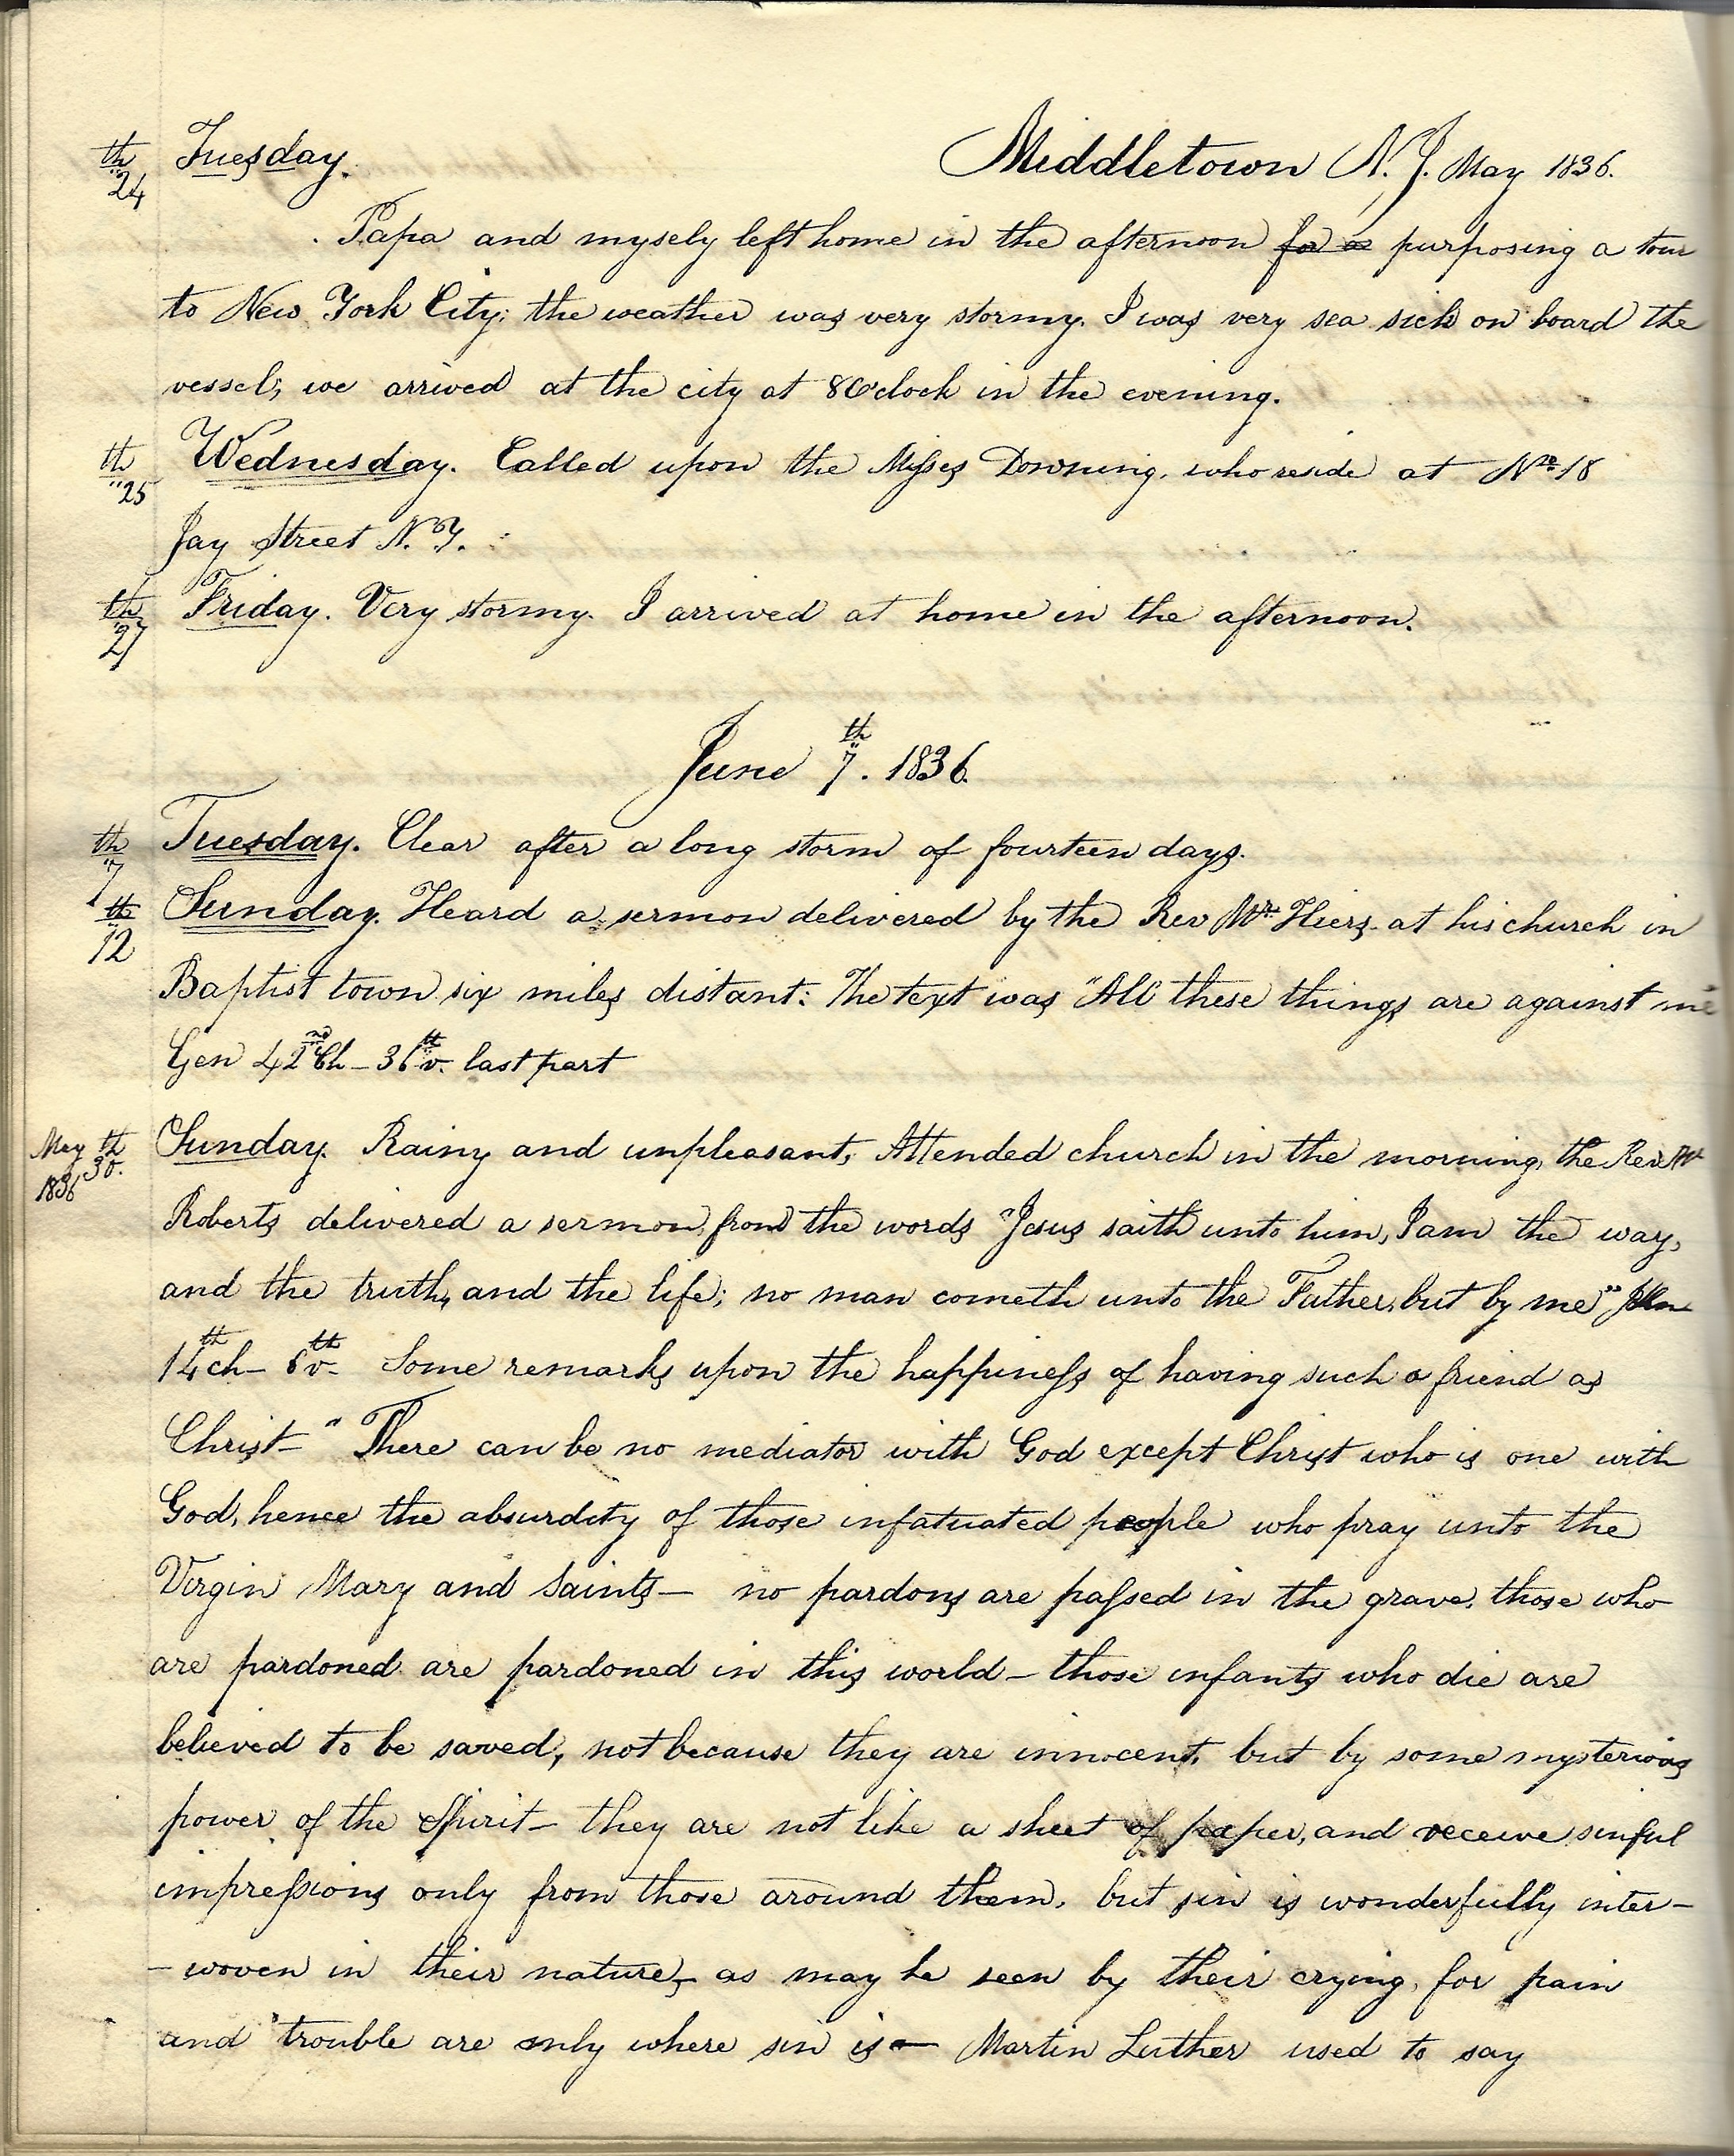 Middletown N. J. May 1836.
24th Tuesday.
Papa and mysely left home in the afternoon for a purposing a tour
to New York City; the weather was very stormy. I was very sea sick on board the
vessel; we arrived at the city at 8 O'clock in the evening.
25th Wednesday. Called upon the Misses Downing, who reside at No 18
Jay Street N. Y.
27th Friday. Very stormy. I arrived at home in the afternoon.
June 7th. 1836.
7th Tuesday. Clear after a long storm of fourteen days.
12th Sunday. Heard a sermon delivered by the Rev Mr. Hiers at his church in
Baptist town six miles distant: The text was "All these things are against me
Gen 42nd Ch - 36th v. last part
May 30th. 1836 Sunday. Rainy and unpleasant, Attended church in the morning, the Rev Mr
Roberts delivered a sermon, from the words "Jesus saith unto him, I am the way,
and the truth, and the life; no man cometh unto the Father, but by me", John
14th ch - 6th v - Some remarks upon the happiness of having such a friend as
Christ - "There can be no mediator with God except Christ who is one with
God, hence the absurdity of those infatuated people who pray unto the
Virgin Mary and Saints - no pardons are passed in the grave, those who
are pardoned are pardoned in this world - those infants who die are
believed to be saved, not because they are innocent, but by some mysterious
power of the Spirit - they are not like a sheet of paper, and receive sinful
impressions only from those around them, but sin is wonderfully inter-
-woven in their nature, as may be seen by their crying, for pain
and trouble are only where sin is - Martin Luther used to say